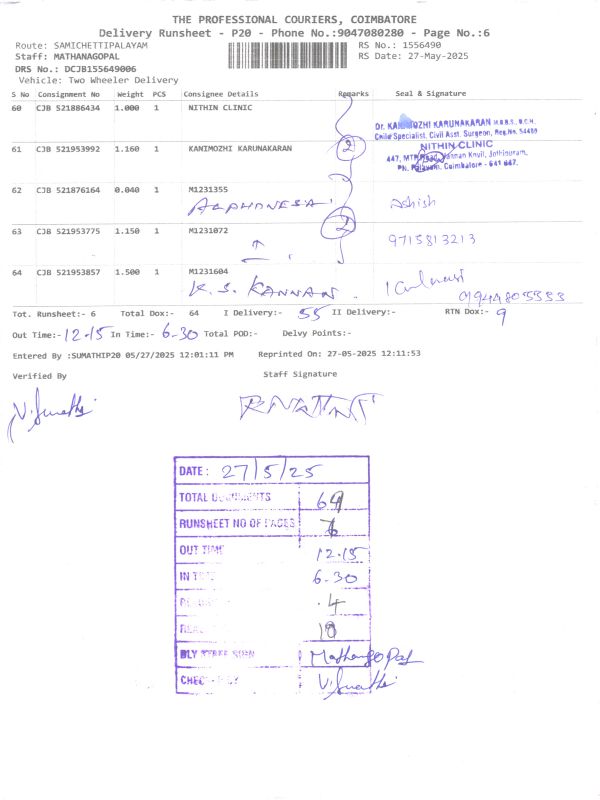 THE PROFESSIONAL COURIERS, COIMBATORE
Delivery Runsheet - P20 - Phone No.:9047080280 - Page No.:6
Route: SAMICHETTIPALAYAM RS No.: 1556490
Staff: MATHANAGOPAL RS Date: 27-May-2025
DRS No.: DCJB155649006
Vehicle: Two Wheeler Delivery
S No Consignment No Weight PCS Consignee Details Remarks Seal & Signature
60 CJB 521886434 1.000 1 NITHIN CLINIC
Dr. KANIMOZHI KARUNAKARAN M.B.B.S., D.C.H.
Child Specialist, Civil Asst. Surgeon, Reg.No. 54480
61 CJB 521953992 1.160 1 KANIMOZHI KARUNAKARAN 2 NITHIN CLINIC
447, MTP Road, Kannan Knvil, Jothipuram,
PN. Palayam, Coimbatore - 641 047.
62 CJB 521876164 0.040 1 M1231355
ALPHONESA. Ashish
63 CJB 521953775 1.150 1 M1231072 2
9715813213
64 CJB 521953857 1.500 1 M1231604
K. S. KANNAN.
9944805553
Tot. Runsheet:- 6 Total Dox:- 64 I Delivery:- 55 II Delivery:- RTN Dox:- 9
Out Time:- 12.15 In Time:- 6.30 Total POD:- Delvy Points:-
Entered By :SUMATHIP20 05/27/2025 12:01:11 PM Reprinted On: 27-05-2025 12:11:53
Verified By Staff Signature
V. Sumathi
DATE: 27/5/25
TOTAL DOCUMENTS 64
RUNSHEET NO OF PAGES
OUT TIME 12.15
IN TIME 6.30
4
10
Mathangopal
V. Sumathi